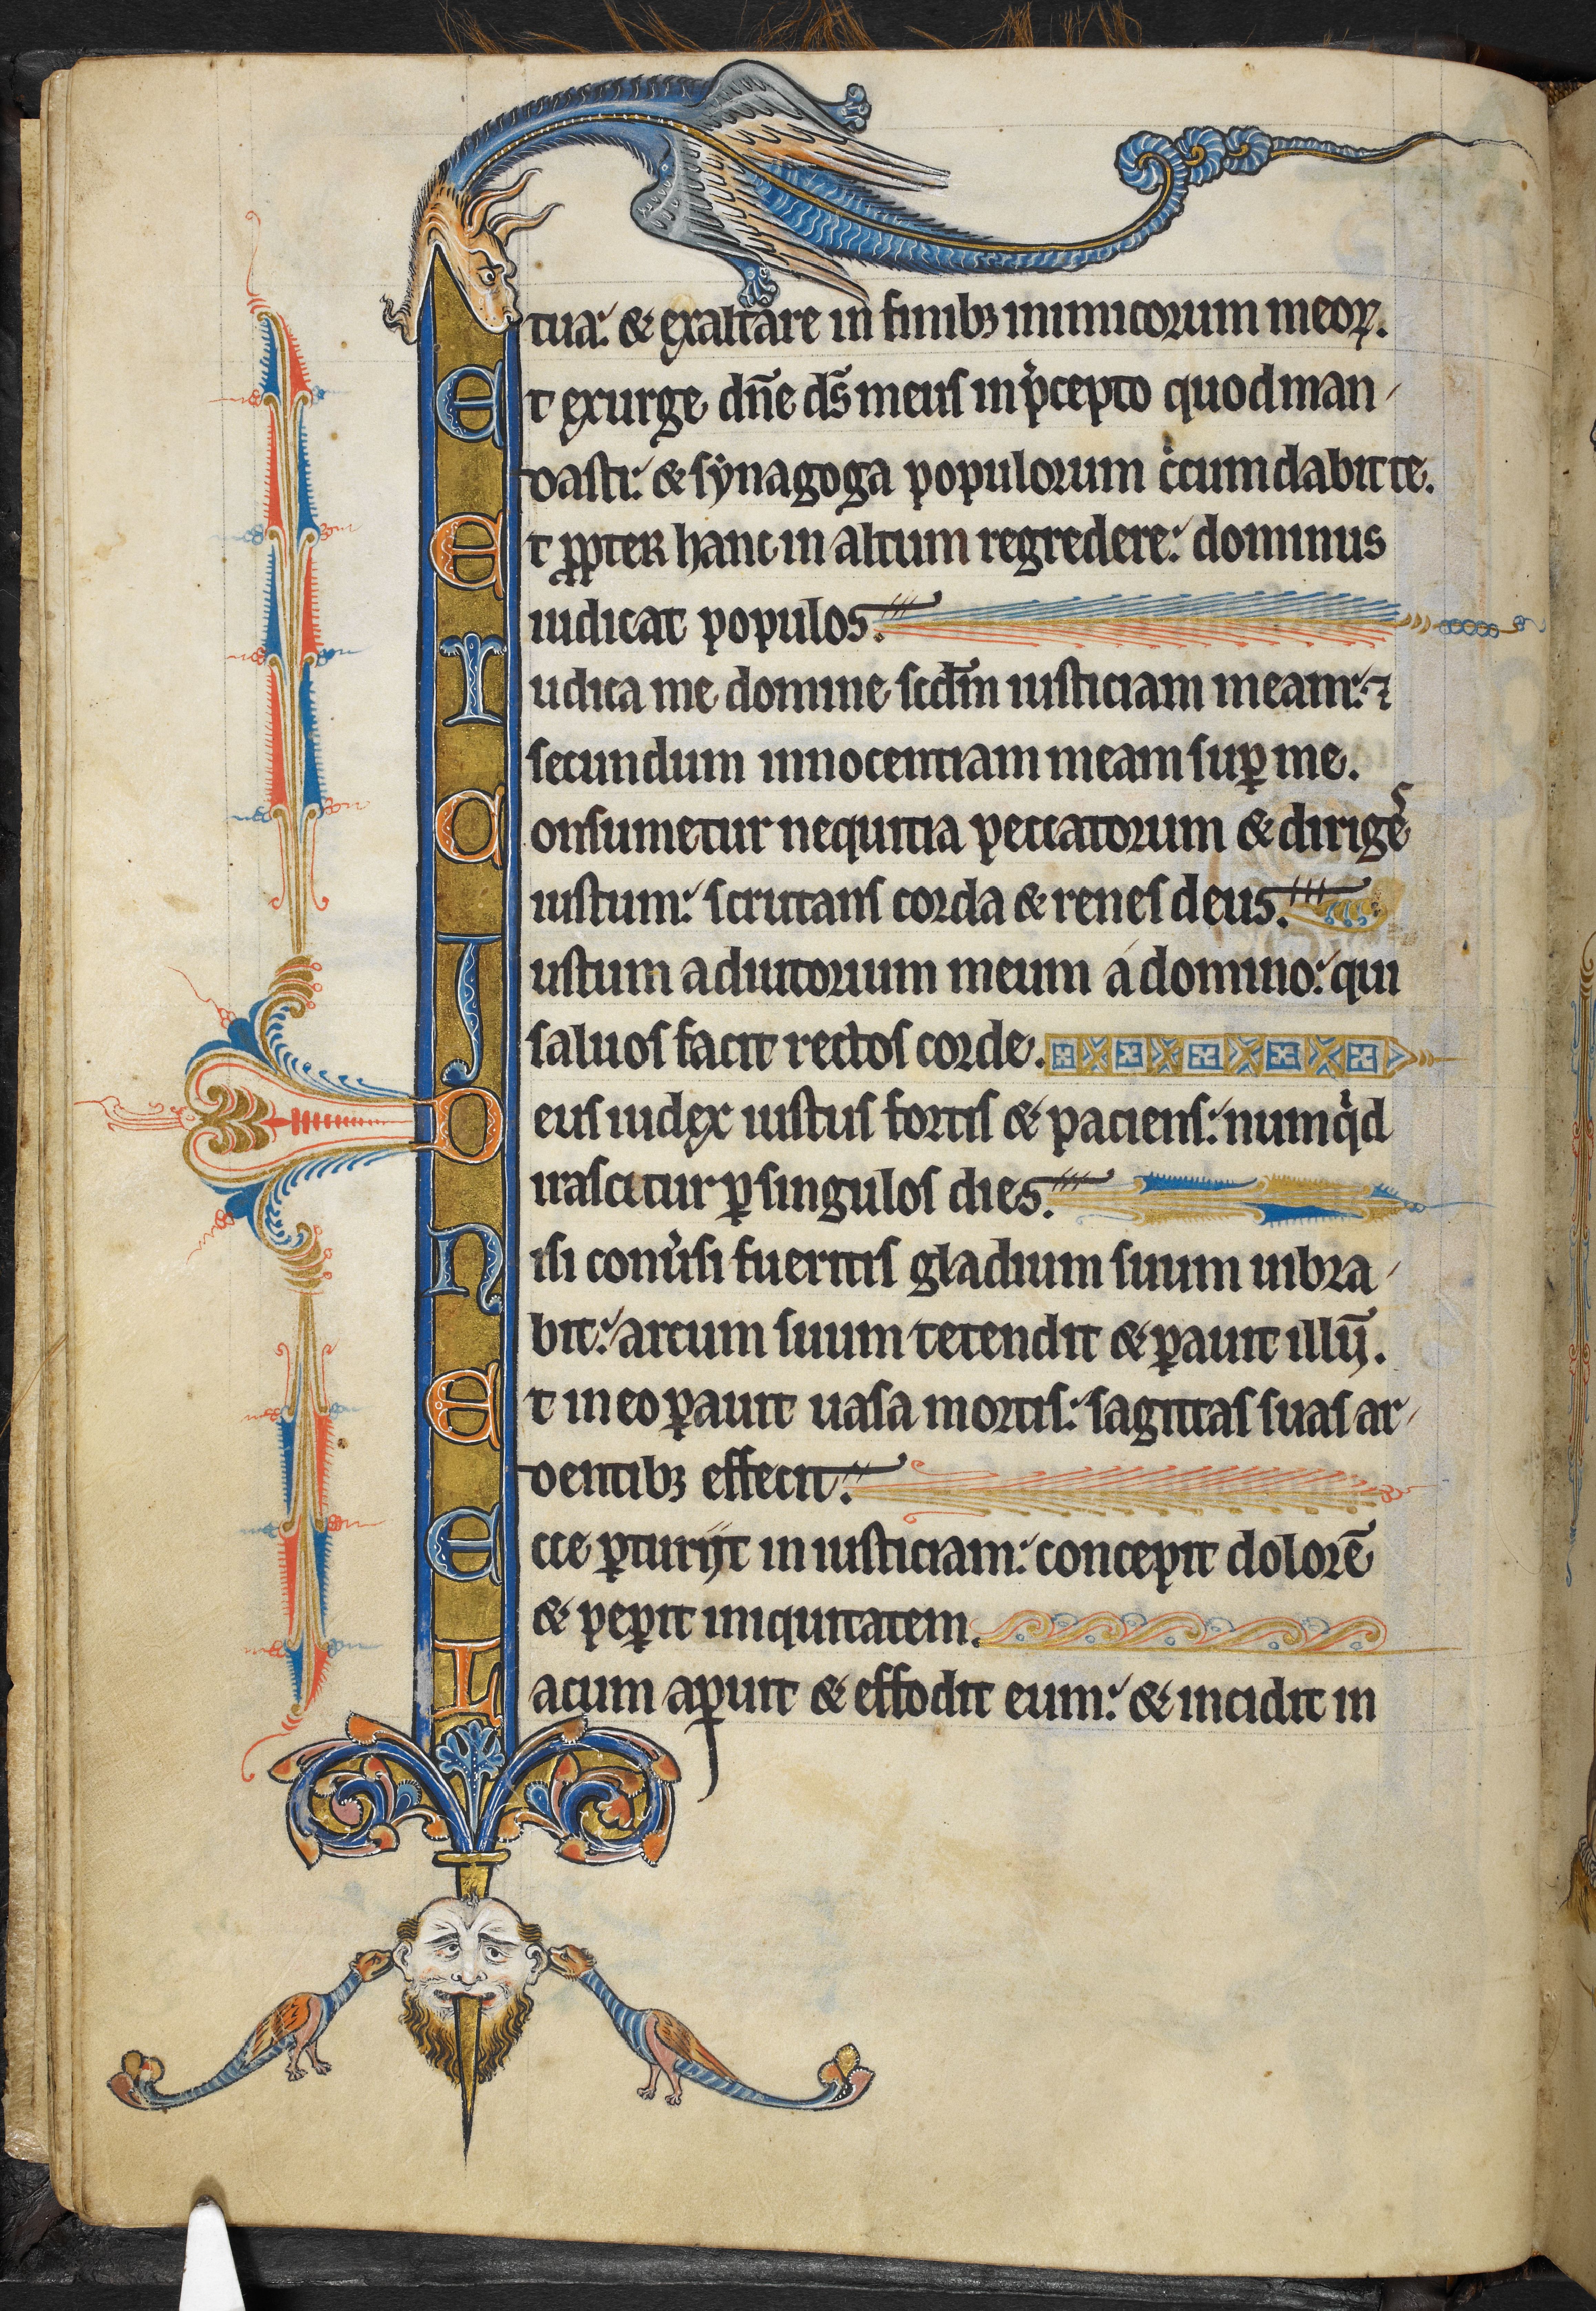 tua: & exaltare in finibꝫ inimicorum meoꝝ.
Et exurge dn̄e ds̄ meus in p̍cepto quod man-
dasti: & synagoga populorum c̍cumdabit te.
Et ꝓpter hanc in altum regredere: dominus
iudicat populos.
Iudica me domine scd̄m iusticiam meam: ⁊
secundum innocentiam meam suꝑ me.
Consumetur nequitia peccatorum & dirigeˢ
iustum: scrutans corda & renes deus.
Iustum adiutorium meum á domino: qui
saluos facit rectos corde.
Deus iudex iustus fortis & paciens: numq̍d
irascitur ꝑ singulos dies.
Nisi conu̍si fueritis gladium suum uibra-
bit: arcum suum tetendit & ꝑauit illū.
Et in eo ꝑauit uasa mortis: sagittas suas ar-
dentibꝫ effecit.
Ecce ꝑturijt iniusticiam: concepit dolorē
& peꝑit iniquitatem.
Lacum aꝑuit & effodit eum: & incidit in